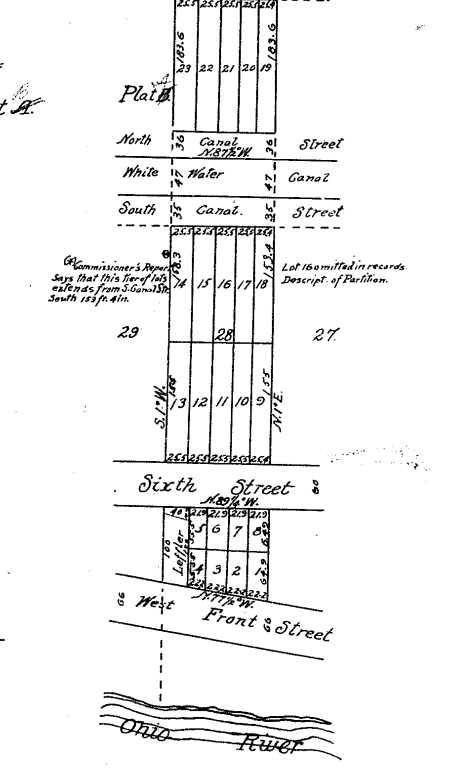 25.5 25.5 25.5 25.5 25.4
183.6 183.6
23 22 21 20 19
Plat B.
t A.
North 36 Canal 36 Street
N.87½°W.
White 47 Water 47 Canal
South 35 Canal. 35 Street
25.5 25.5 25.5 25.5 25.4
Commissioner's Report
Says that this tier of lots
extends from S. Canal Str.
South 153 ft. 4 In.
158.3 159.4
14 15 16 17 18
Lot 16 omitted in records
Descript. of Partition.
29 28 27.
S.1°W. 155 155 N.1°E.
13 12 11 10 9
25.5 25.5 25.5 25.5 25.4
Sixth Street 60
N.89¼°W.
40 21.9 21.9 21.9 21.9
5 6 7 8
100 Leffler
4 3 2 1 64.9
22.2 22.2 22.2 22.2
N.77½°W.
66 West Front 66 Street
Ohio River